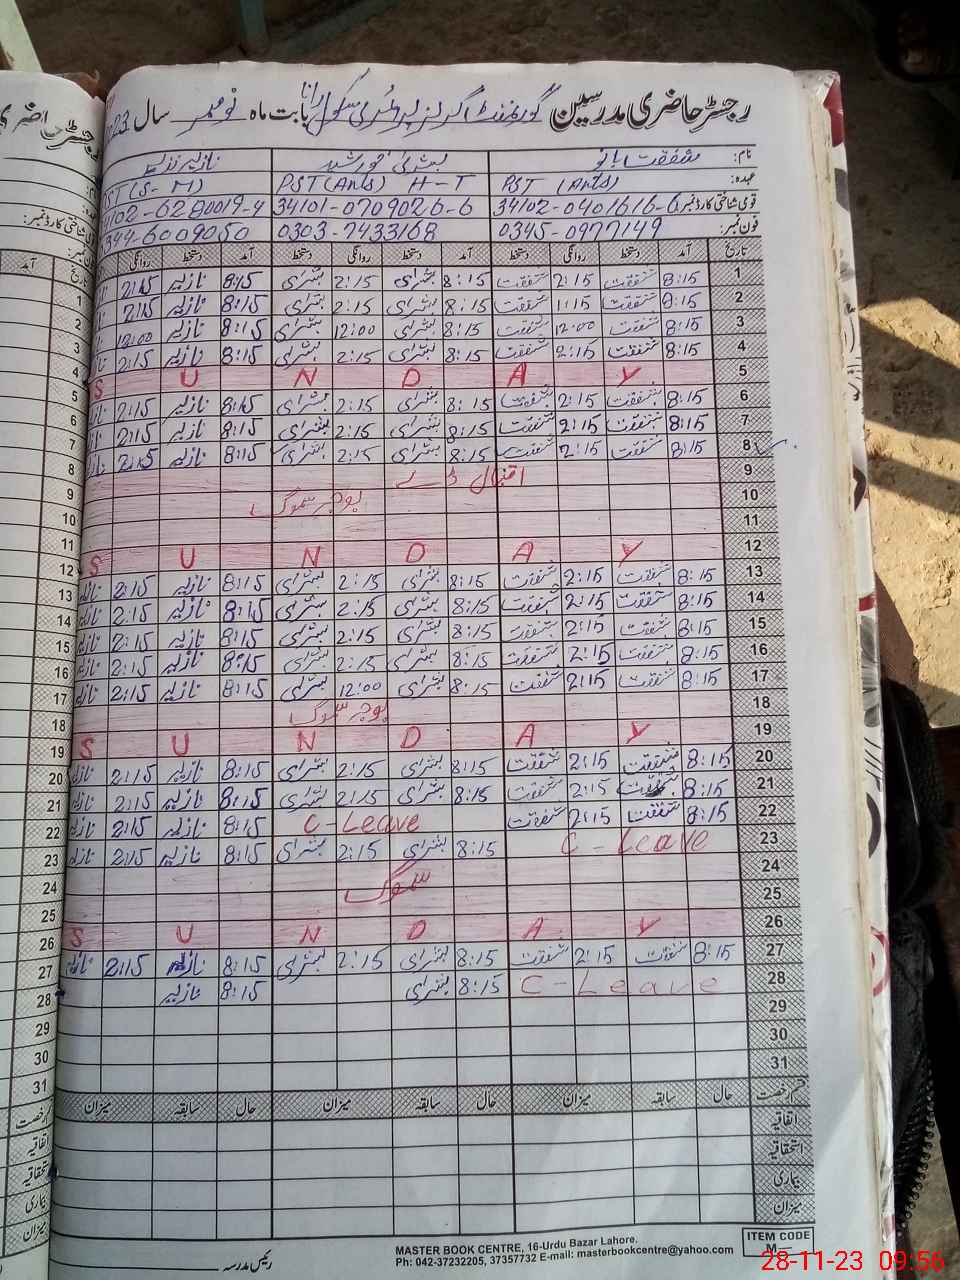 رجسٹر حاضری مدرسین گورنمنٹ گرلز پرائمری سکول بابت ماہ نومبر سال 23
نام: شفقت بانو بشریٰ خورشید نازلیہ
عہدہ: PST (Arts) PST (Arts) H-T PST (S-M)
قومی شناختی کارڈ نمبر: 34102-0401616-6 34101-0709026-6 34102-6280019-4
فون نمبر: 0345-0977149 0303-7433168 0344-6009050
تاریخ آمد دستخط روانگی دستخط آمد دستخط روانگی دستخط آمد دستخط روانگی
1 8:15 شفقت 2:15 شفقت 8:15 بشریٰ 2:15 بشریٰ 8:15 نازلیہ 2:15
2 8:15 شفقت 1:15 شفقت 8:15 بشریٰ 2:15 بشریٰ 8:15 نازلیہ 2:15
3 8:15 شفقت 12:00 شفقت 8:15 بشریٰ 12:00 بشریٰ 8:15 نازلیہ 12:00
4 8:15 شفقت 2:15 شفقت 8:15 بشریٰ 2:15 بشریٰ 8:15 نازلیہ 2:15
5 S U N D A Y
6 8:15 شفقت 2:15 شفقت 8:15 بشریٰ 2:15 بشریٰ 8:15 نازلیہ 2:15
7 8:15 شفقت 2:15 شفقت 8:15 بشریٰ 2:15 بشریٰ 8:15 نازلیہ 2:15
8 8:15 شفقت 2:15 شفقت 8:15 بشریٰ 2:15 بشریٰ 8:15 نازلیہ 2:15
9 اقبال ڈے
10 بوجہ سموگ
11
12 S U N D A Y
13 8:15 شفقت 2:15 شفقت 8:15 بشریٰ 2:15 بشریٰ 8:15 نازلیہ 2:15 نازلیہ
14 8:15 شفقت 2:15 شفقت 8:15 بشریٰ 2:15 بشریٰ 8:15 نازلیہ 2:15 نازلیہ
15 8:15 شفقت 2:15 شفقت 8:15 بشریٰ 2:15 بشریٰ 8:15 نازلیہ 2:15 نازلیہ
16 8:15 شفقت 2:15 شفقت 8:15 بشریٰ 2:15 بشریٰ 8:15 نازلیہ 2:15 نازلیہ
17 8:15 شفقت 2:15 شفقت 8:15 بشریٰ 12:00 بشریٰ 8:15 نازلیہ 2:15 نازلیہ
18 بوجہ سموگ
19 S U N D A Y
20 8:15 شفقت 2:15 شفقت 8:15 بشریٰ 2:15 بشریٰ 8:15 نازلیہ 2:15 نازلیہ
21 8:15 شفقت 2:15 شفقت 8:15 بشریٰ 2:15 بشریٰ 8:15 نازلیہ 2:15 نازلیہ
22 8:15 شفقت 2:15 شفقت C-Leave 8:15 نازلیہ 2:15 نازلیہ
23 C-Leave 8:15 بشریٰ 2:15 بشریٰ 8:15 نازلیہ 2:15 نازلیہ
24 سموگ
25
26 S U N D A Y
27 8:15 شفقت 2:15 شفقت 8:15 بشریٰ 2:15 بشریٰ 8:15 نازلیہ 2:15 نازلیہ
28 C-Leave 8:15 بشریٰ 8:15 نازلیہ
29
30
31
قسم رخصت حال سابقہ میزان حال سابقہ میزان حال سابقہ میزان
اتفاقیہ
استحقاقیہ
بیماری
میزان
رئیس مدرسہ
MASTER BOOK CENTRE, 16-Urdu Bazar Lahore.
Ph: 042-37232205, 37357732 E-mail: masterbookcentre@yahoo.com
ITEM CODE
M
28-11-23 09:56